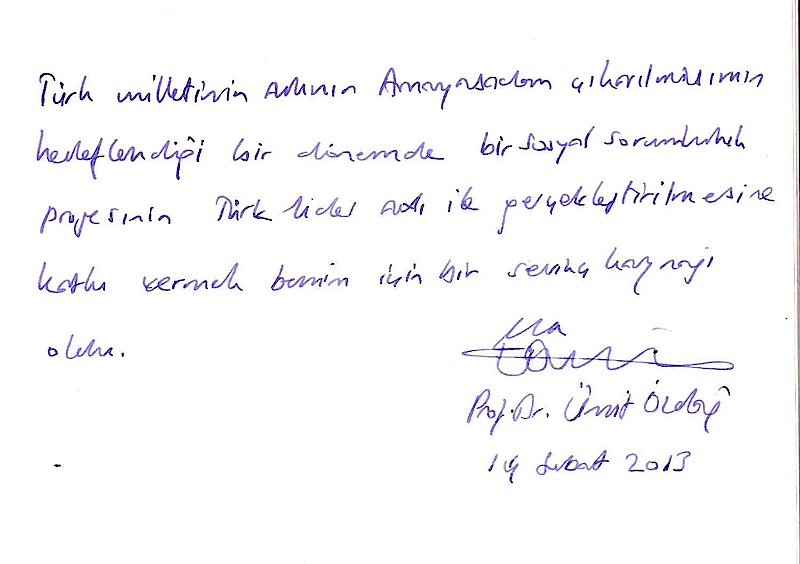 Türk milletinin adının Anayasadan çıkarılmasının
hedeflendiği bir dönemde bir sosyal sorumluluk
projesinin Türk lider adı ile gerçekleştirilmesine
katkı vermek benim için bir sevinç kaynağı
oldu.
Prof. Dr. Ümit Özdağ
14 Şubat 2013